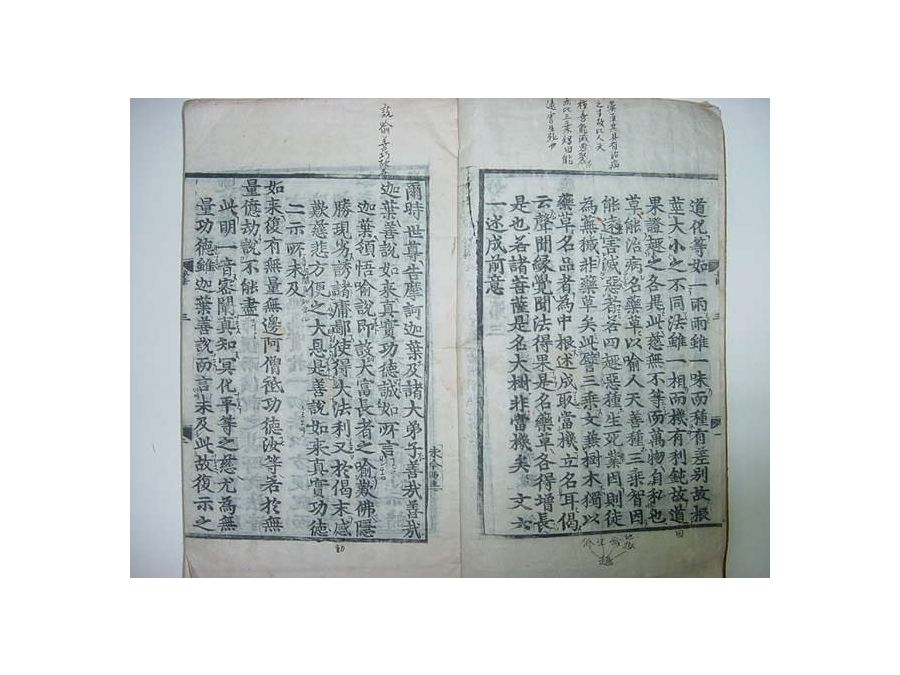 道化等如一雨雖一味而種有差別故根
莖大小之不同法雖一相而機有利鈍故道
果證趣之各異此慈無不等而萬物自私也
草能治病名藥草以喻人天善種三乘智因
能遠害滅惡若名四趣惡種生死業因則徒
為蕪穢非藥草矣此譬三乘文兼樹木獨以
藥草名品者為中根述成取當機立名耳偈
云聲聞緣覺聞法得果是名藥草各得增長
是也若諸菩薩是名大樹非當機矣 文六
一述成前意
爾時世尊告摩訶迦葉及諸大弟子善哉善哉
迦葉善說如來真實功德誠如所言
迦葉領悟喻說即設大富長者之喻歎佛隱
勝現劣誘諸庸鄙使得大法利又於偈末感
歎慈悲方便之大恩是善說如來真實功德
二示所未及
如來復有無量無邊阿僧祇功德汝等若於無
量億劫說不能盡
此明一音密闡真知冥化平等之慈尤為無
量功德雖迦葉善說而言未及此故復示之